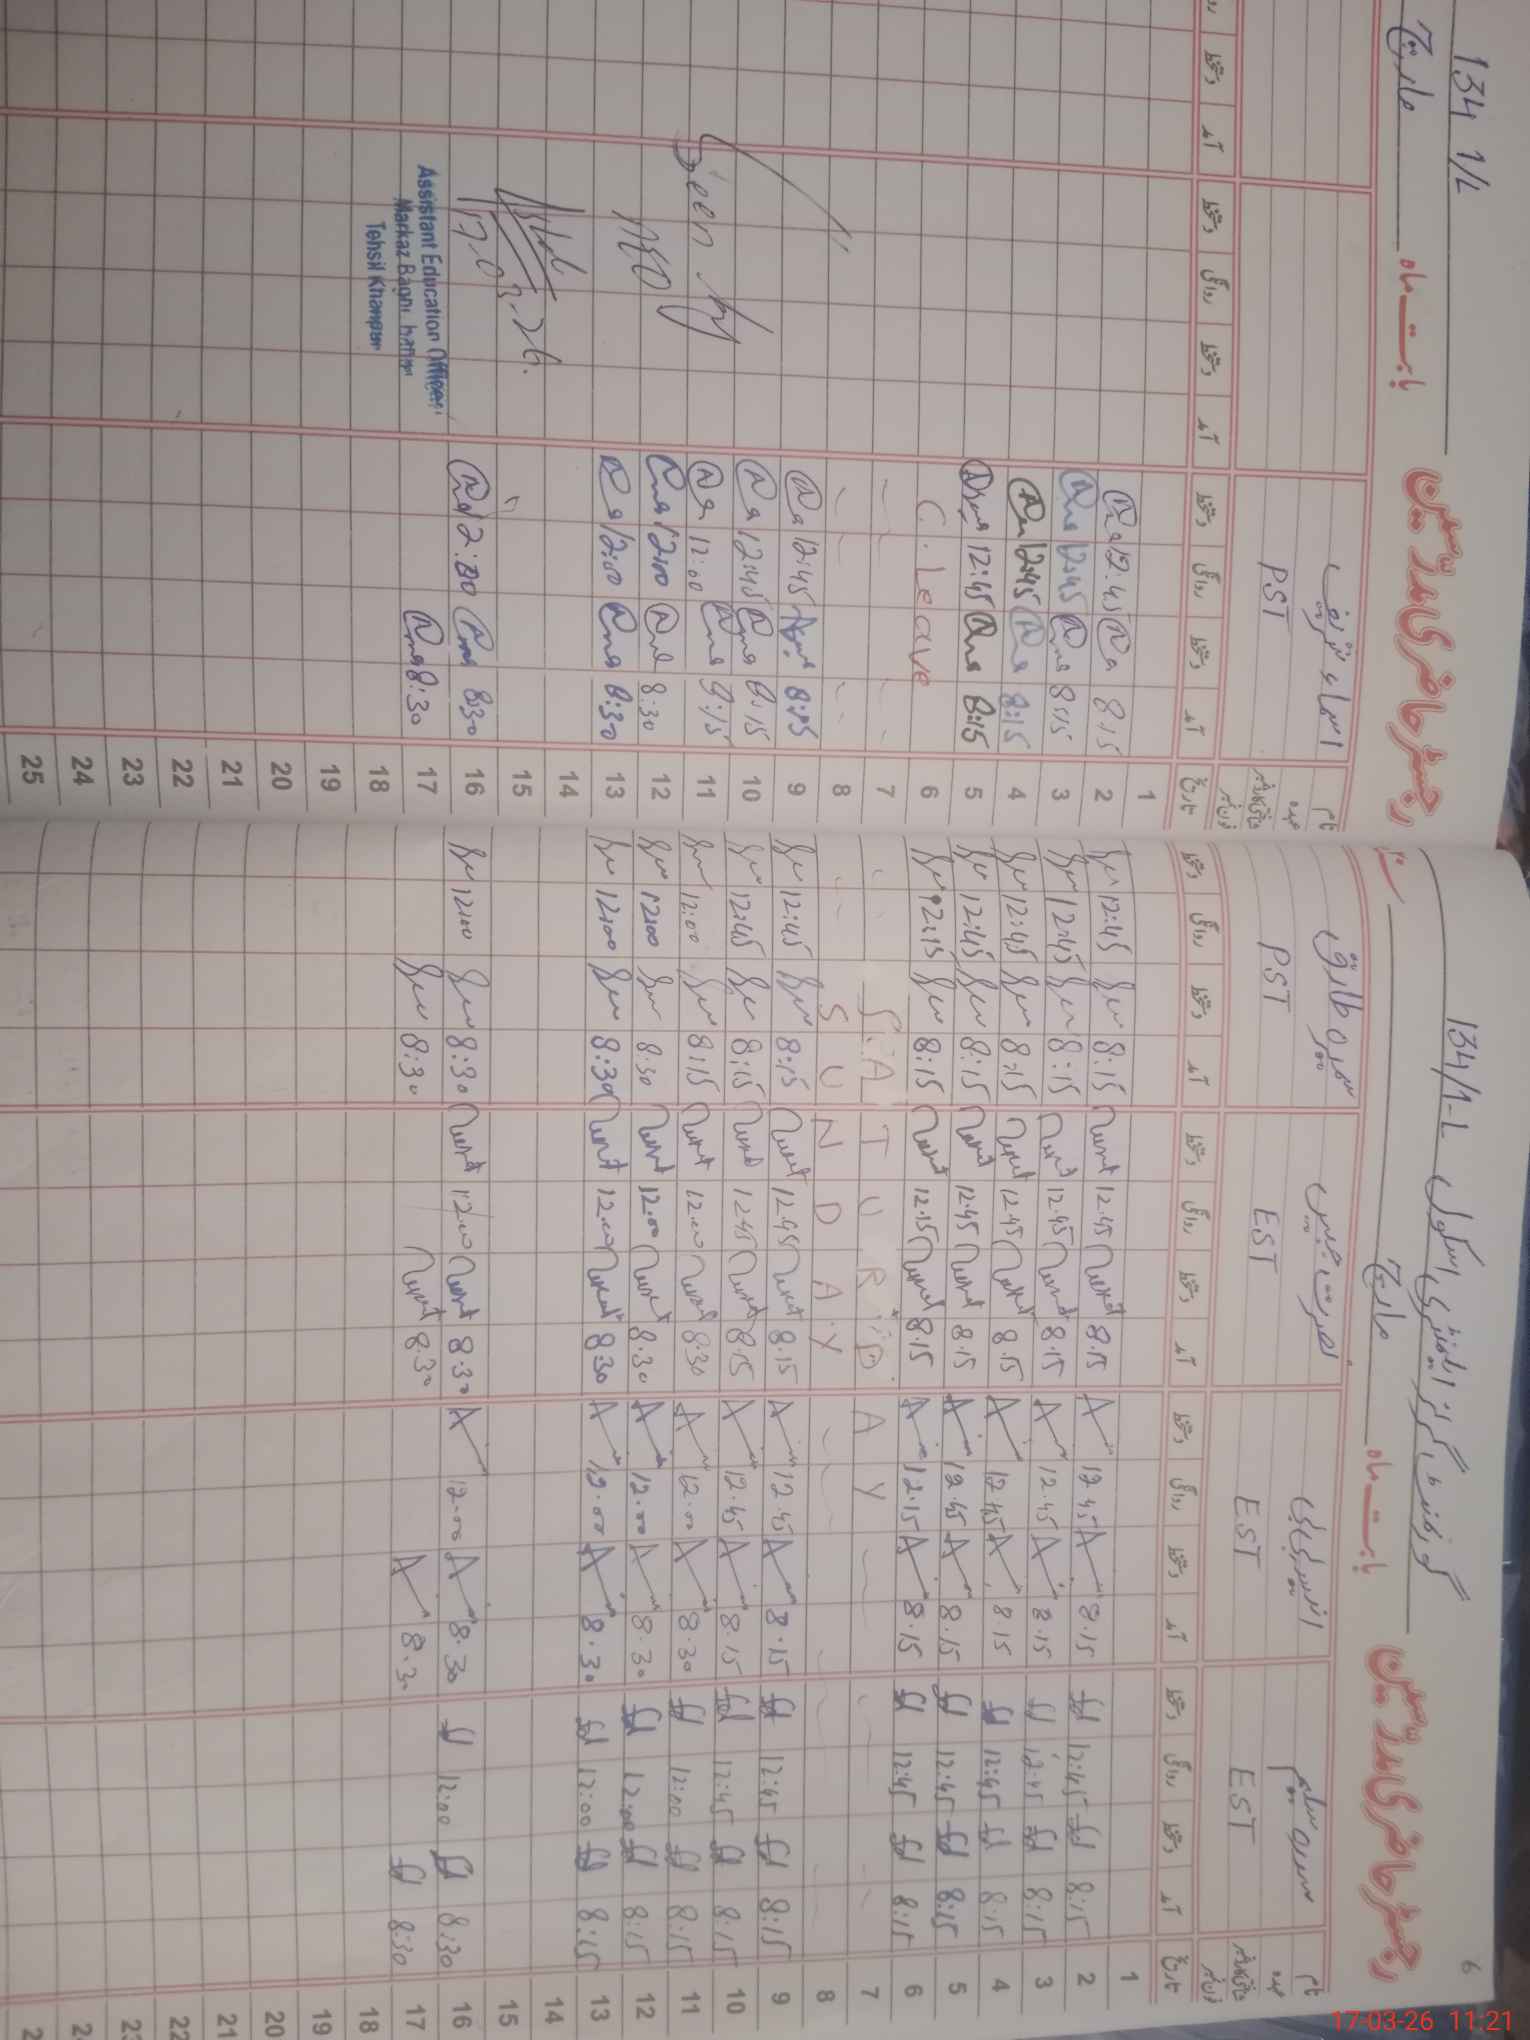 6
گورنمنٹ گرلز ایلیمنٹری سکول 134/1-L
رجسٹر حاضری مدرسین بابت ماہ مارچ
نام
عہدہ
تاریخ
EST EST EST PST
آمد دستخط روانگی دستخط آمد دستخط روانگی دستخط آمد دستخط روانگی دستخط آمد دستخط روانگی دستخط
1
2 8:15 12:45 8.15 12.45 8.15 12.45 8:15 12:45
3 8:15 12:45 8.15 12.45 8.15 12.45 8:15 12:45
4 8:15 12:45 8.15 12.45 8.15 12.45 8:15 12:45
5 8:15 12:45 8.15 12.45 8.15 12.45 8:15 12:45
6 8:15 12:45 8.15 12.15 8.15 12.15 8:15 12:15
7 SATURDAY
8 SUNDAY
9 8:15 12:45 8.15 12.45 8.15 12.45 8:15 12:45
10 8:15 12:45 8.15 12.45 8.15 12.45 8:15 12:45
11 8:15 12:00 8.30 12.00 8:30 12.00 8:15 12:00
12 8:15 12:00 8.30 12.00 8.30 12.00 8:30 12:00
13 8:15 12:00 8.30 12.00 8:30 12.00 8:30 12:00
14
15
16 8:30 12:00 8.30 12.00 8:30 12.00 8:30 12:00
17 8:30 8.30 8.30 8:30
18
19
20
21
22
134 1/L
رجسٹر حاضری مدرسین
بابت ماہ مارچ
نام اسماء شریف
عہدہ PST
تاریخ آمد دستخط روانگی دستخط آمد دستخط روانگی دستخط آمد دستخط
1
2 8:15 12:45
3 8:15 12:45
4 8:15 12:45
5 8:15 12:45
6 C. Leave
7
8
9 8:15 12:45
10 8:15 12:45
11 8:15 12:00
12 8:30 12:00
13 8:30 12:00
14
15
16 8:30 12:00
17 8:30
18
19
20
21
22
23
24
25
Seen by
AEO
17.03.26.
Assistant Education Officer
Markaz
Tehsil Khanpur
17-03-26 11:21